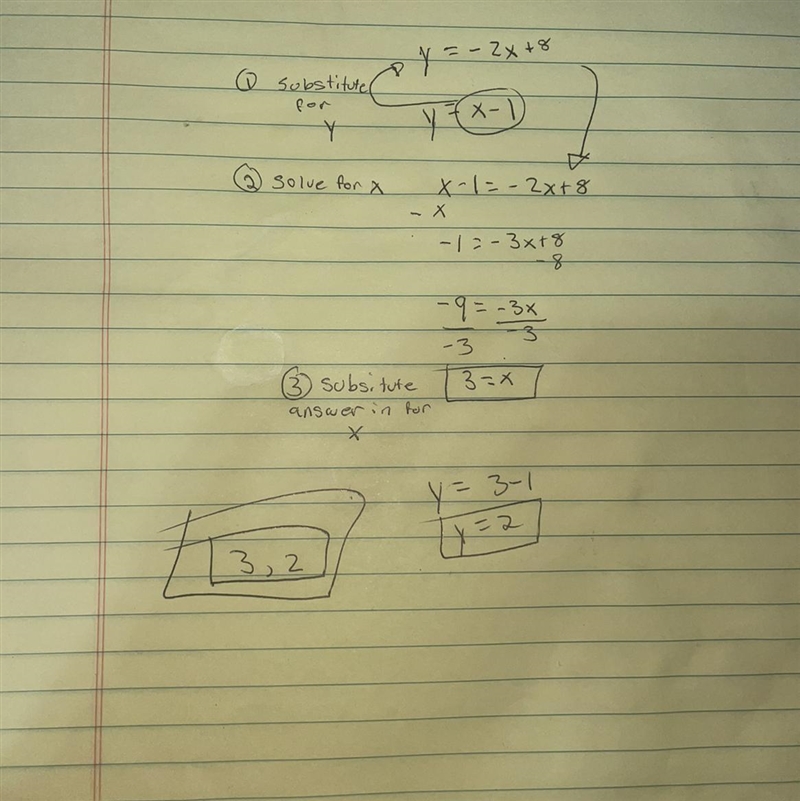 y = -2x+8
① Substitute
for
y
y = x-1
② Solve for x
x-1 = -2x+8
- x
-1 = -3x+8
-8
-9 = -3x
-3 -3
3 = x
③ Subsitute
answer in for
x
y = 3-1
y = 2
3, 2